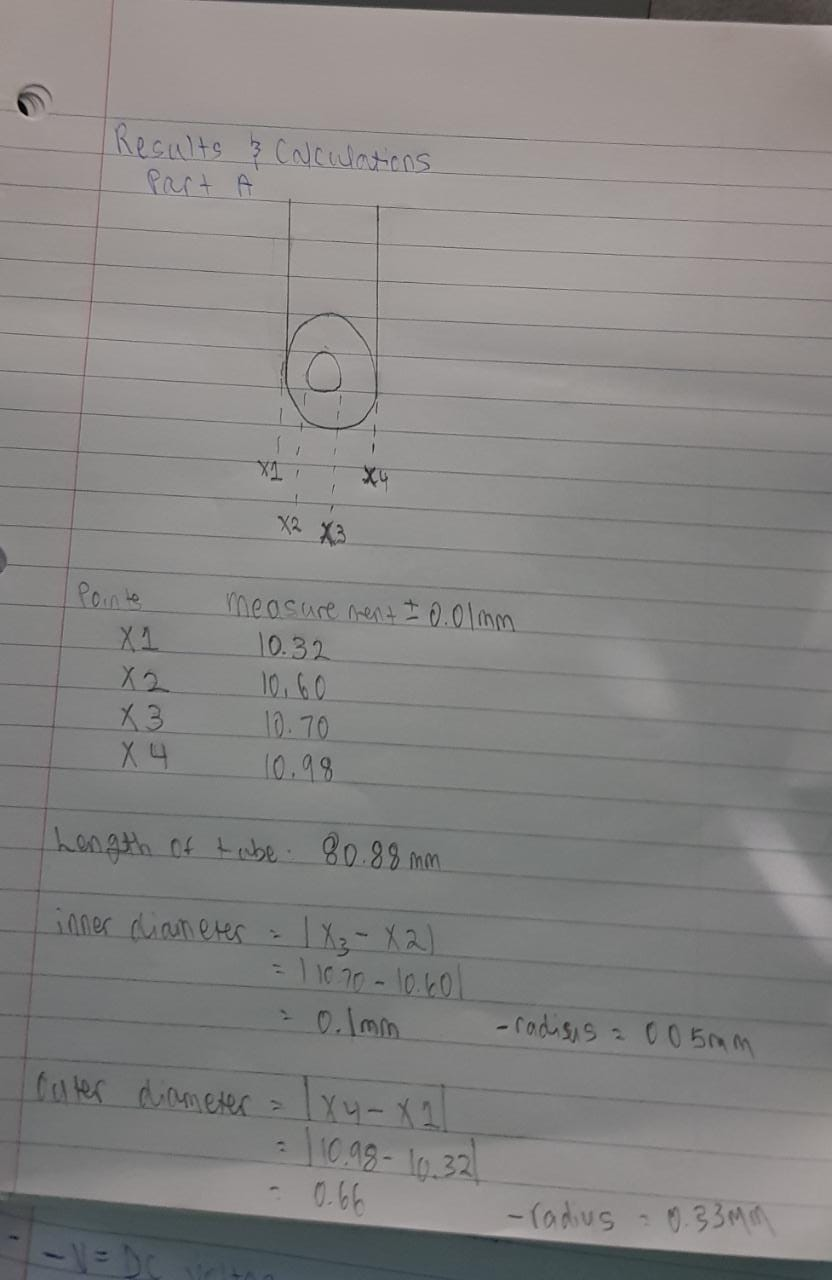 Results & Calculations
Part A
X1
X4
X2 X3
Points measurement ± 0.01mm
X1 10.32
X2 10.60
X3 10.70
X4 10.98
Length of tube: 80.88 mm
inner diameter = |X3 - X2|
= |10.70 - 10.60|
= 0.1mm - radisus = 0.05mm
Outer diameter = |X4 - X1|
= |10.98 - 10.32|
= 0.66 - radius = 0.33mm
- V = DC